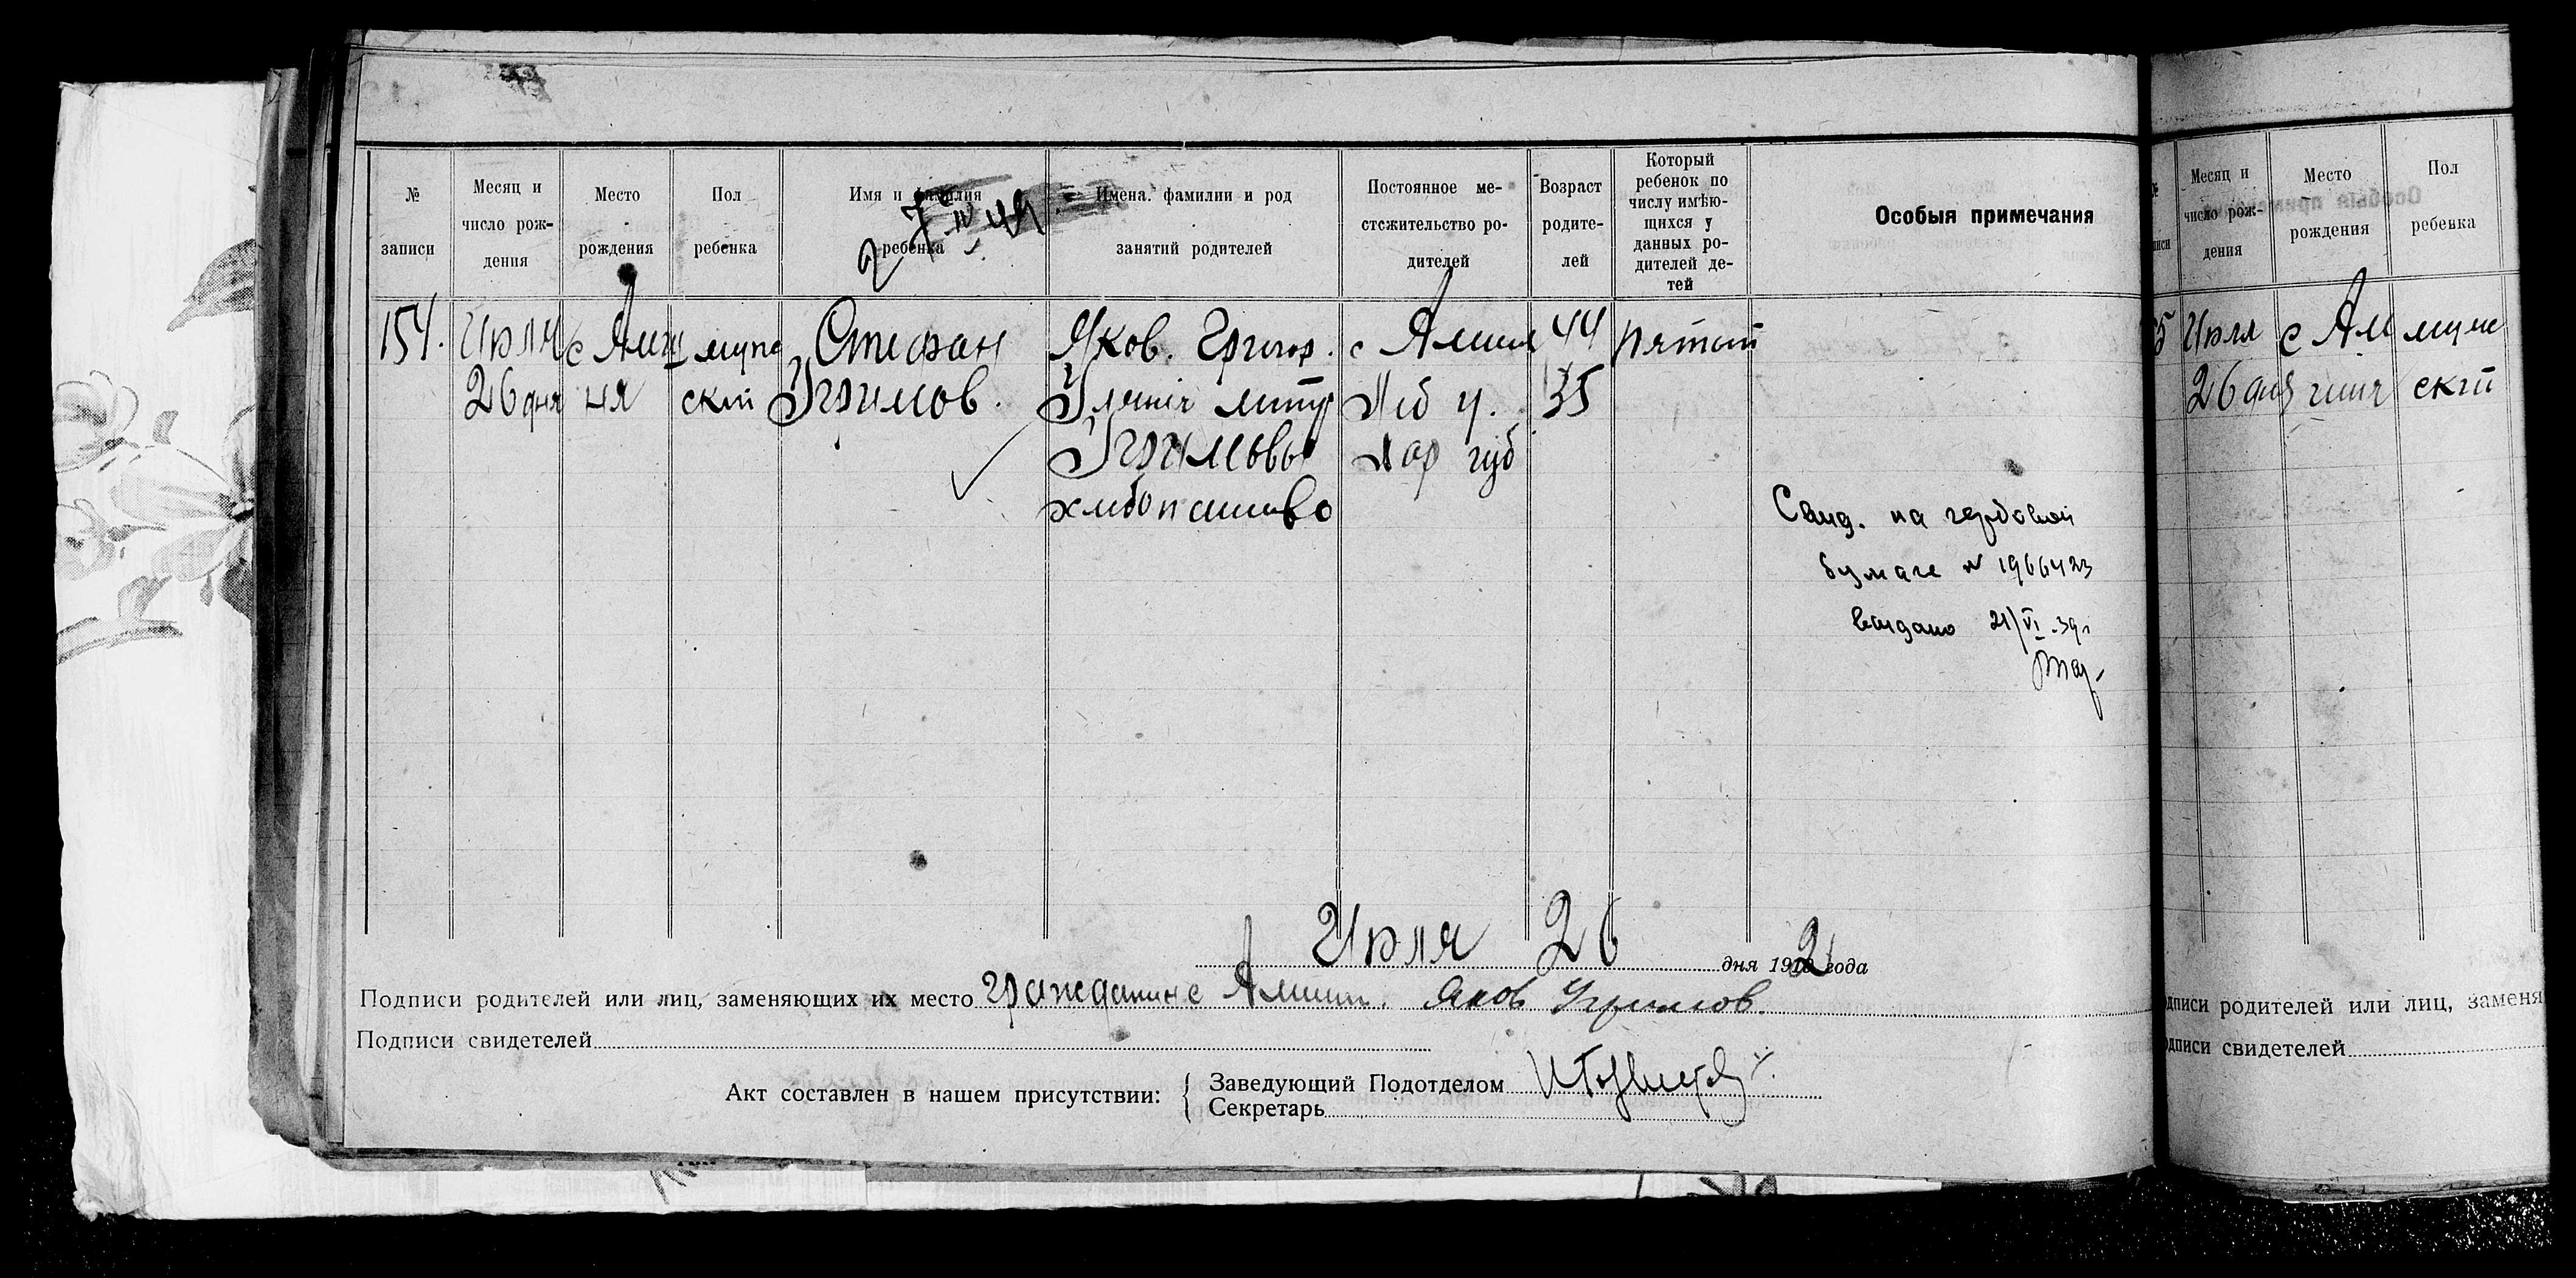 № записи
Месяц и число рождения
Место рождения
Пол ребенка
Имя и фамилия ребенка
Имена, фамилии и род занятий родителей
Постоянное местсжительство родителей
Возраст родителей
Который ребенок по числу имѣющихся у данных родителей детей
Особыя примечания
154.
Июля
26 дня
с
ня
мужс
ский
Стефан
Угримов.
Яков. Григор.
Угримовы
с
губ
44
35
пятый
Свид. на гербовой
бумаге № 1966423
выдано 21/VI.39г
Июля 26 дня 192 года
Подписи родителей или лиц, заменяющих их место гражданин с Яков Угримов.
Подписи свидетелей
Акт составлен в нашем присутствии:
Заведующий Подотделом
Секретарь
Месяц и число рождения
Место рождения
Пол ребенка
Июля
26 дня
с Ам
муже
ский
одписи родителей или лиц, заменя
одписи свидетелей